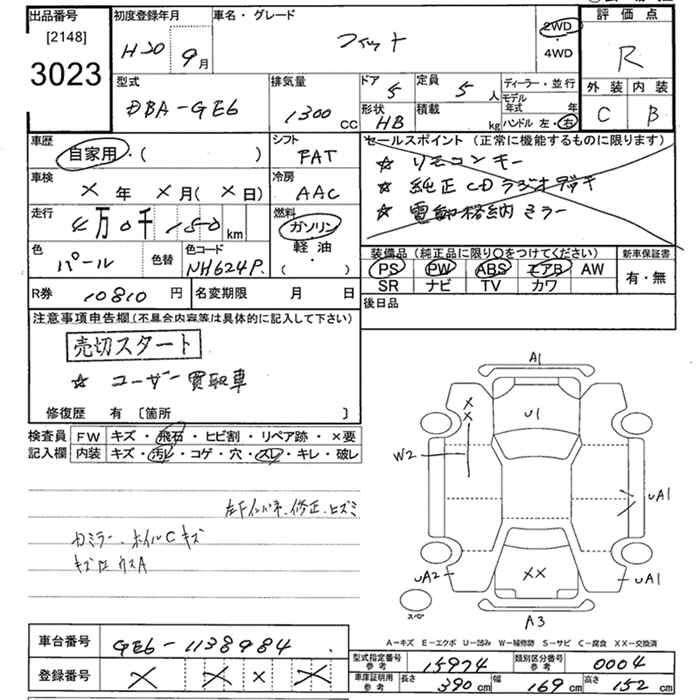 出品番号
[2148]
3023
初度登録年月
H20 9月
車名・グレード
フィット
2WD
・
4WD
評価点
R
外装 内装
C B
型式
DBA-GE6
排気量
1300 CC
ドア 5
定員 5人
形状 HB
積載 kg
ディーラー・並行
モデル年式 年
ハンドル 左・右
車歴
自家用・( )
シフト
FAT
車検
× 年 × 月(× 日)
冷房
AAC
走行
4万0千150km
燃料
ガソリン
軽油
( ・ )
色
パール
色替
色コード
NH624P
R券 10810 円
名変期限 月 日
セールスポイント (正常に機能するものに限ります)
☆ リモコンキー
☆ 純正CDラジオデッキ
☆ 電動格納ミラー
装備品 (純正品に限り○をつけてください)
PS PW ABS エアB AW
SR ナビ TV カワ
新車保証書
有・無
後日品
注意事項申告欄(不具合内容等は具体的に記入して下さい)
売切スタート
☆ ユーザー買取車
修復歴 有 [箇所 ]
検査員
記入欄
FW キズ・飛石・ヒビ割・リペア跡・×要
内装 キズ・汚レ・コゲ・穴・スレ・キレ・破レ
修正、ヒズミ
ミラー、ホイルCキズ
A1
U1
×
×
W2
UA1
××
UA2
UA1
スペア
A3
A-キズ E-エクボ U-凹み W-補修跡 S-サビ C-腐食 XX-交換済
車台番号 GE6-1138984
登録番号 × × × ×
型式指定番号
参考
15974
類別区分番号
参考
0004
車庫証明用
参考
長さ 390cm
幅 169cm
高さ 152cm